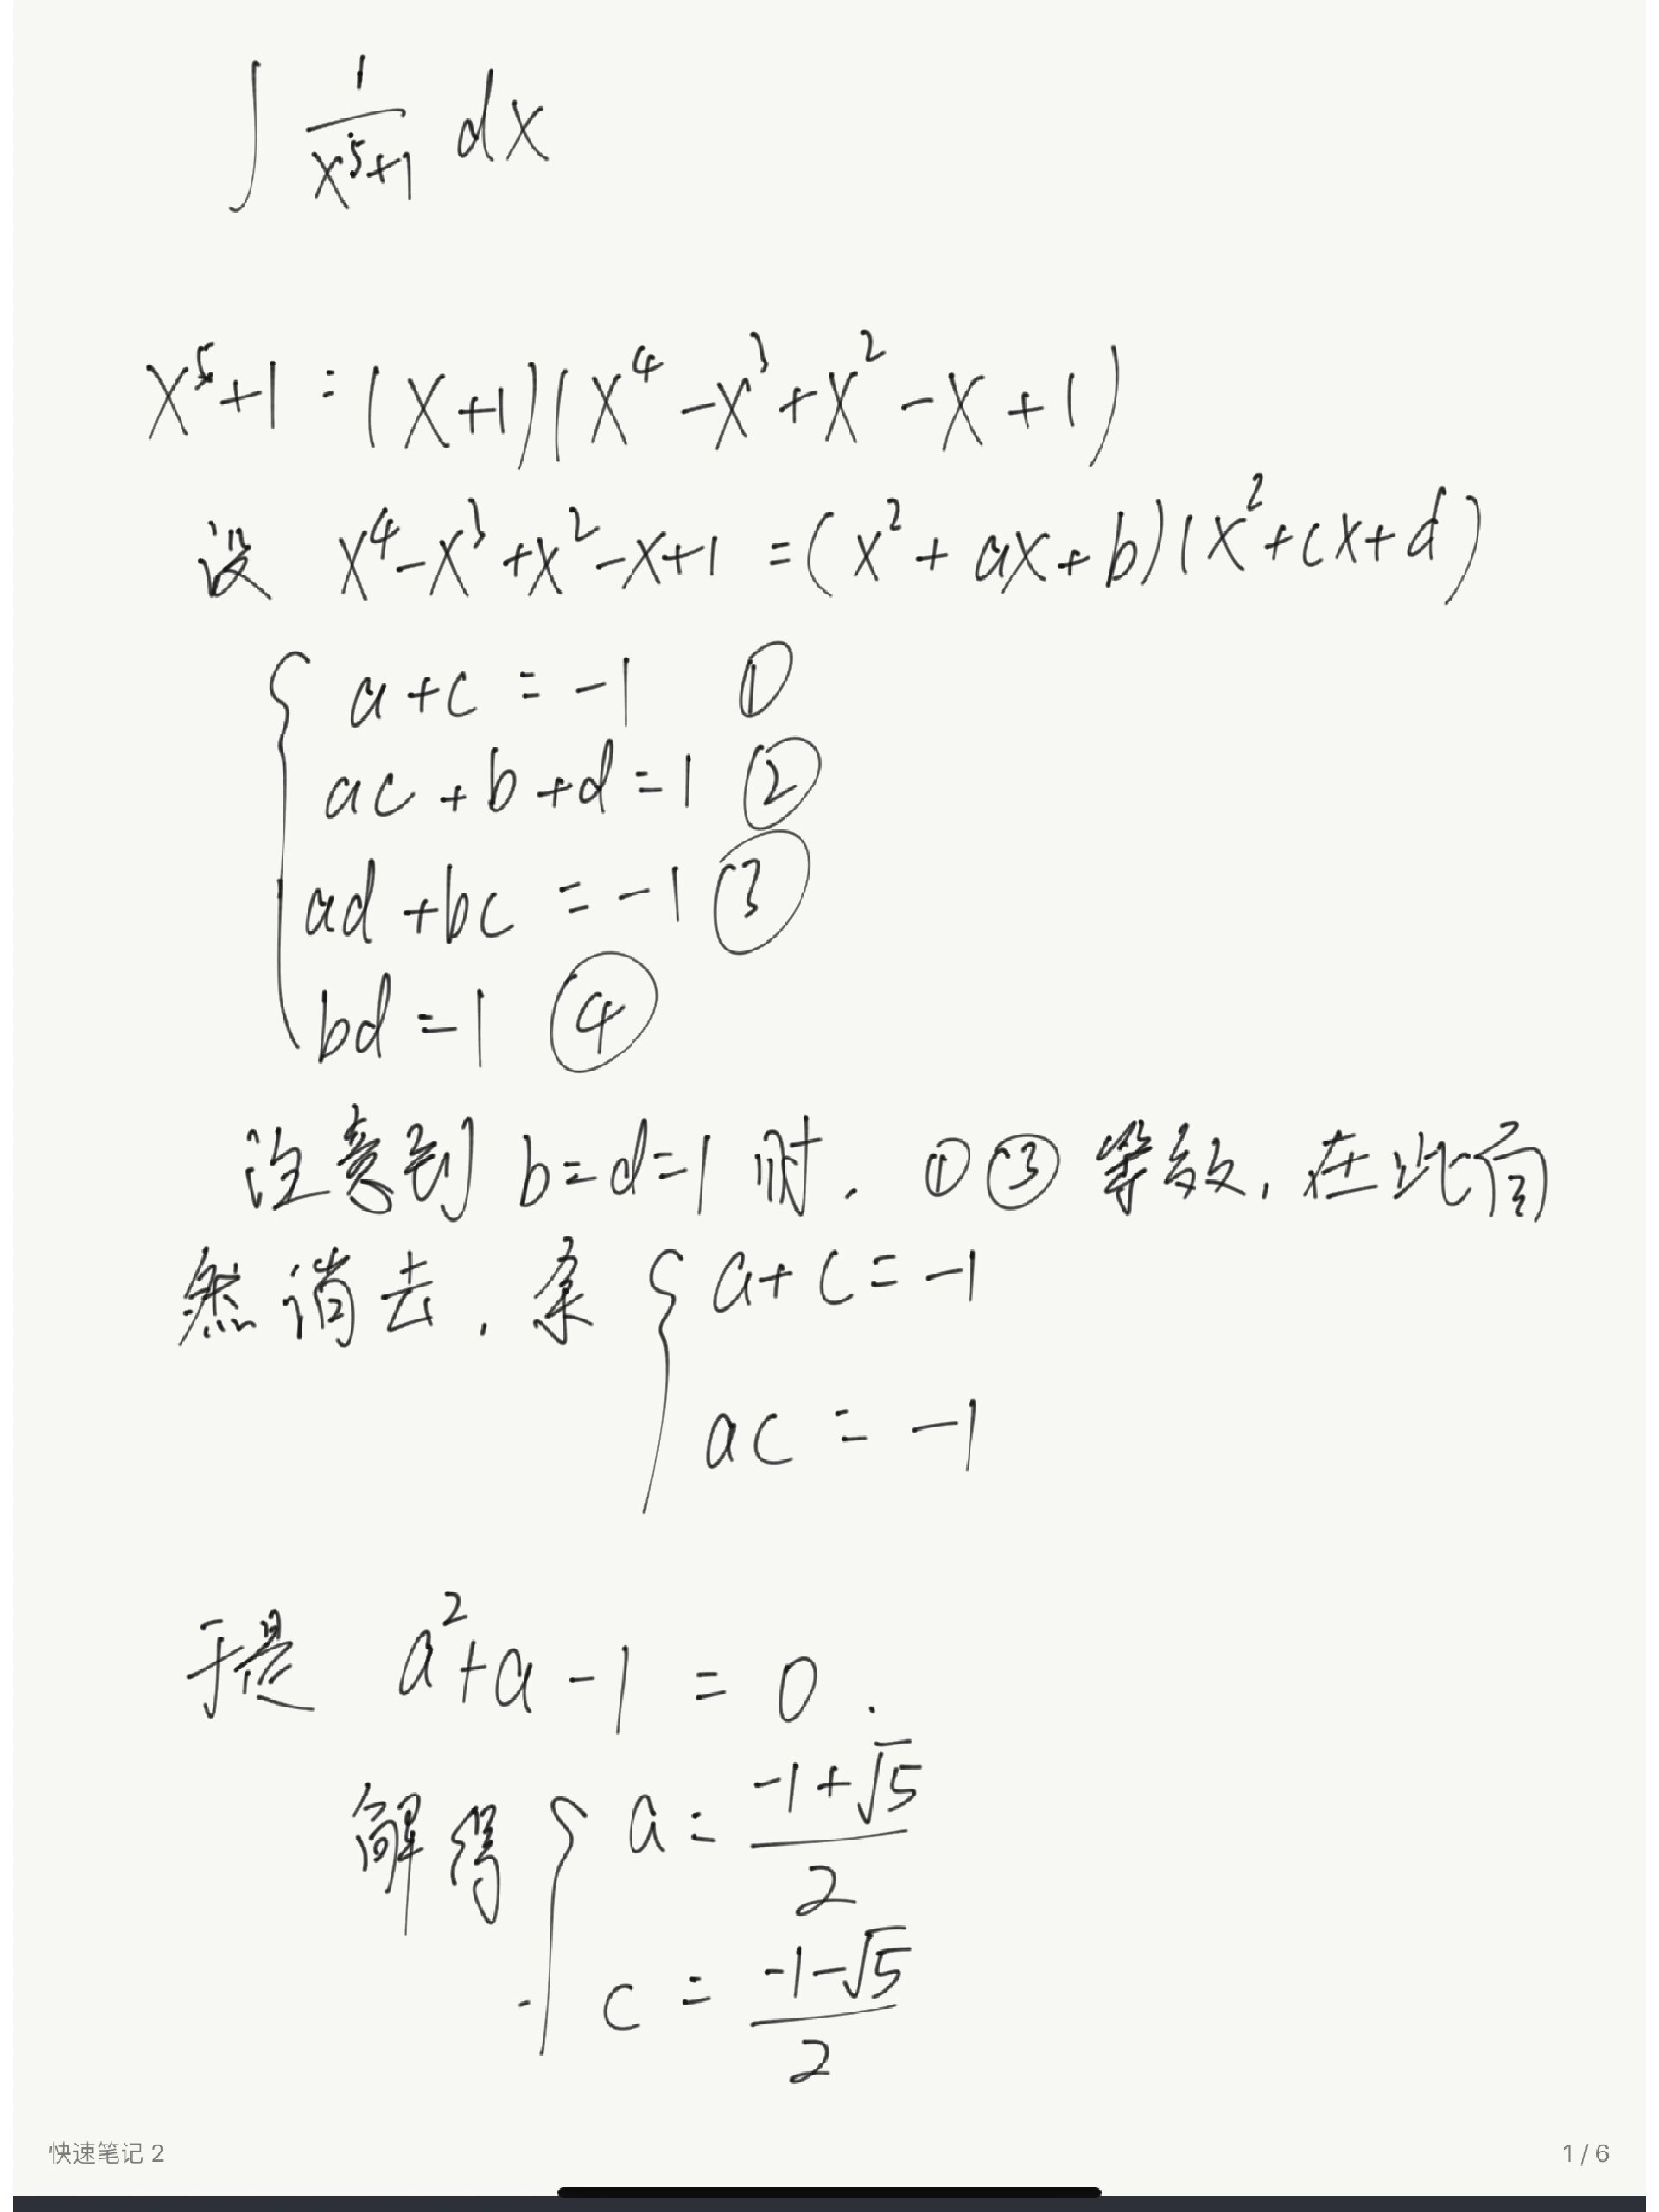 ∫ 1/(x⁵+1) dx
x⁵+1 = (x+1)(x⁴-x³+x²-x+1)
设 x⁴-x³+x²-x+1 = (x²+ax+b)(x²+cx+d)
{ a+c = -1 ①
ac+b+d = 1 ②
ad+bc = -1 ③
bd = 1 ④
注意到 b=d=1 时. ①③等效, 在此自
然消去, 余 { a+c = -1
ac = -1
于是 a²+a-1 = 0.
解得 { a = (-1+√5)/2
c = (-1-√5)/2
快速笔记 2
1 / 6